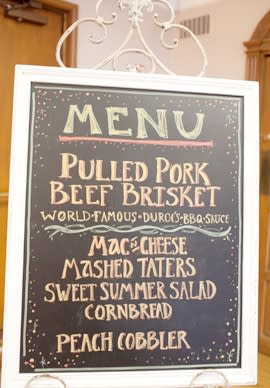 MENU
PULLED PORK
BEEF BRISKET
WORLD-FAMOUS-DUROC'S-BBQ-SAUCE
MAC & CHEESE
MASHED TATERS
SWEET SUMMER SALAD
CORNBREAD
PEACH COBBLER